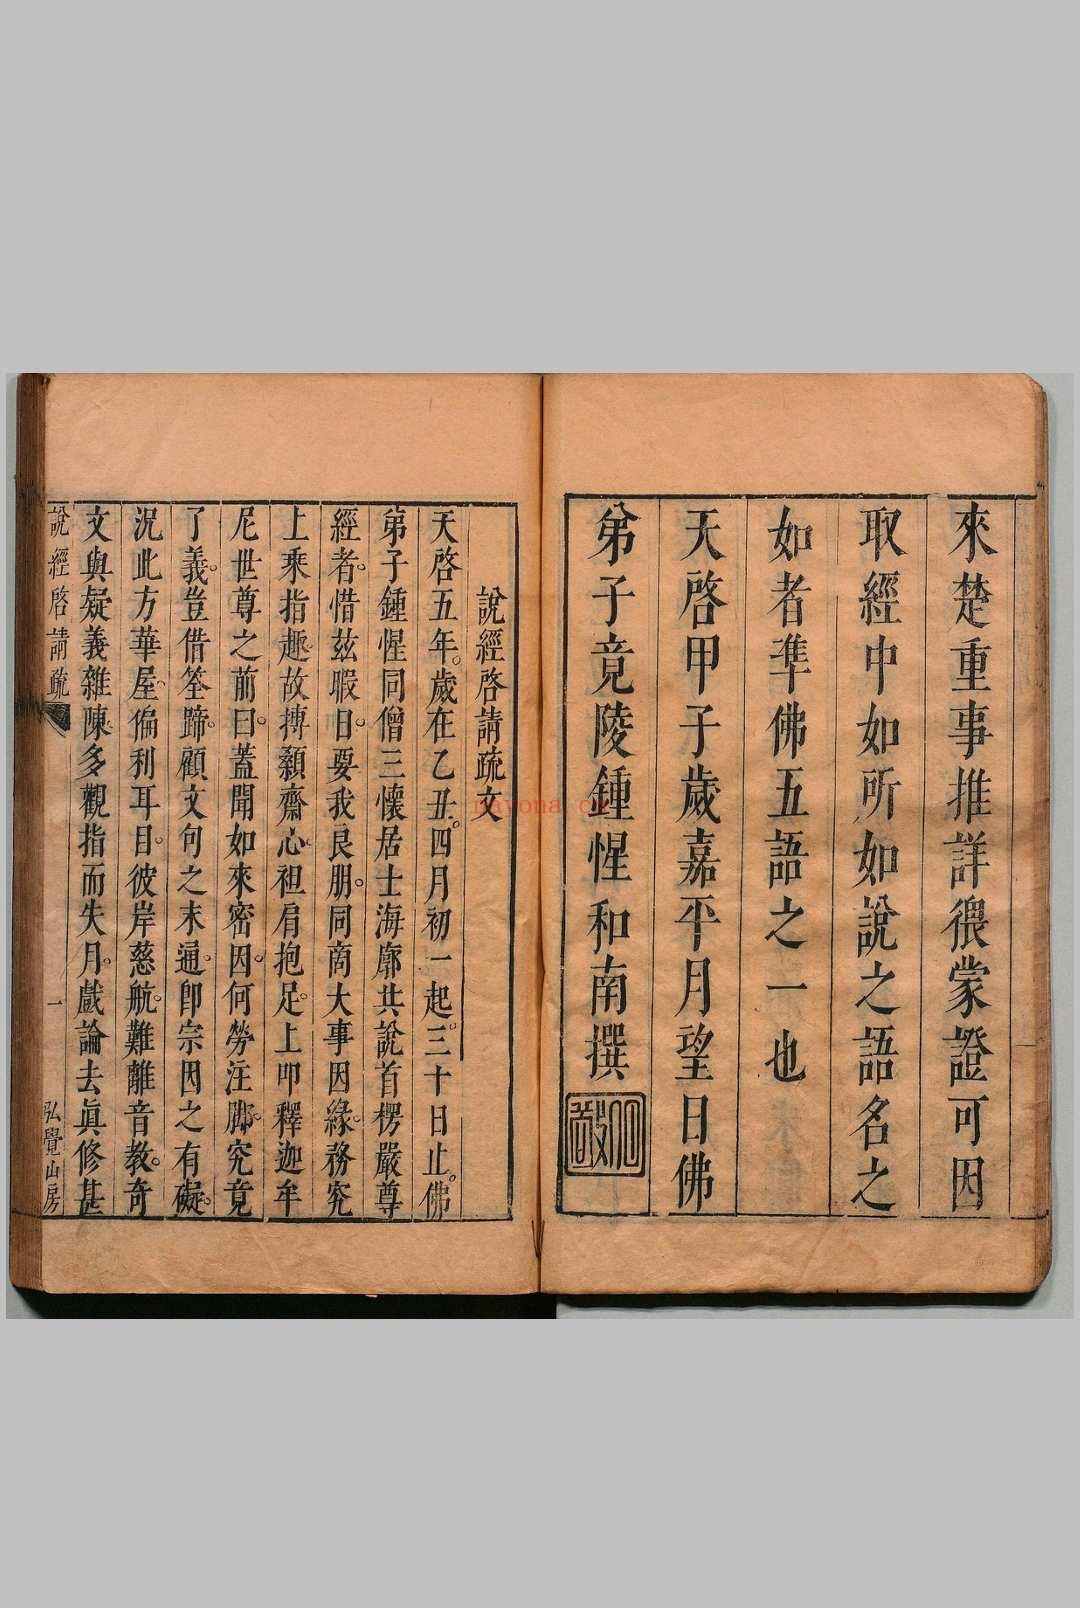 來楚重事推詳猥蒙證可因
取經中如所如說之語名之
如者準佛五語之一也
天啓甲子歲嘉平月望日佛
弟子竟陵鍾惺和南撰
說經啓請疏文
天啓五年。歲在乙丑。四月初一起。三十日止。佛
弟子鍾惺同僧三懷居士海廓共說首楞嚴尊
經者。惜玆暇日。要我良朋。同商大事因緣。務究
上乘指趣。故搏顙齋心。袒肩抱足。上叩釋迦牟
尼世尊之前曰。蓋聞如來密因。何勞注脚。究竟
了義。豈借筌蹄。顧文句之末通。卽宗因之有礙。
況此方華屋。偏利耳目。彼岸慈航。難離音教。奇
文與疑義雜陳。多觀指而失月。戲論去眞修甚
說經啓請疏
一
弘覺山房
nayona.cn